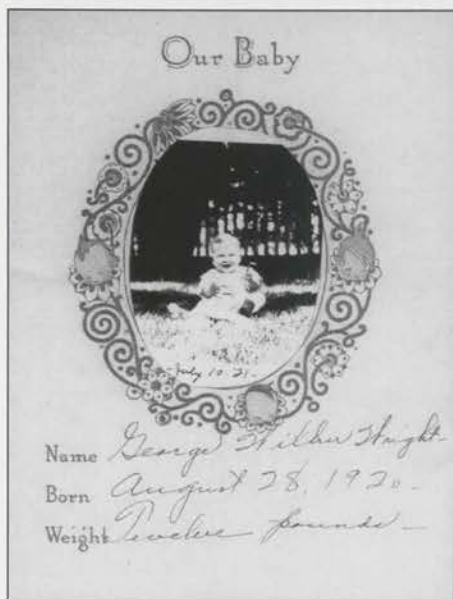 Our Baby
July 10 - 21 -
Name George Wilber Wright
Born August 28, 1920 -
Weight Twelve pounds -